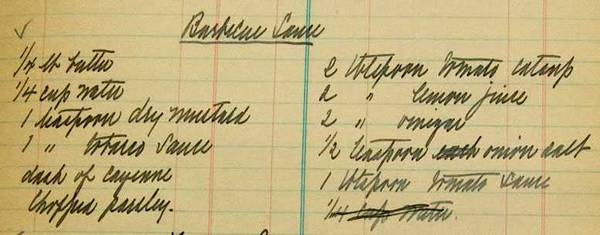 Barbecue Sauce
1/4 lb butter
1/4 cup water
1 teaspoon dry mustard
1 " tobasco Sauce
dash of cayenne
Chopped parsley.
2 tblspoon Tomato catsup
2 " lemon juice
2 " vinegar
1/2 teaspoon each onion salt
1 tblspoon Tomato Sauce
1/4 cup water.